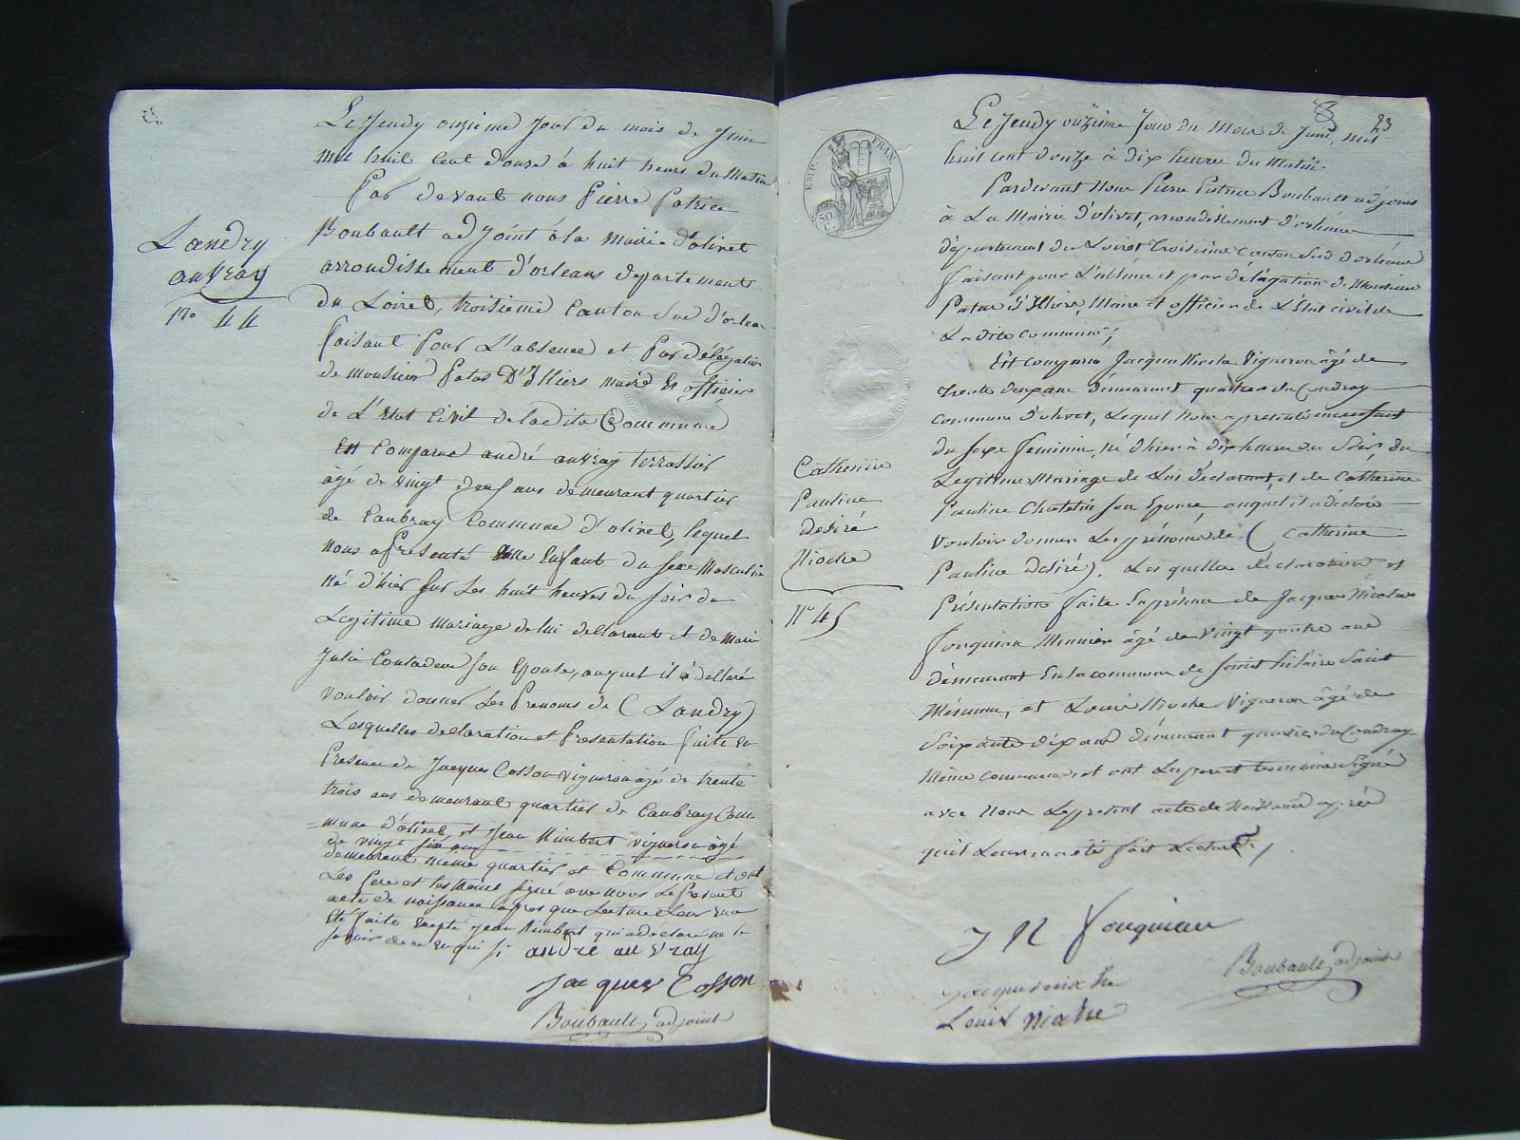 Le Jeudy onzieme Jour du mois de Juin
mil huit Cent douze á huit heures du Matin
Par devant nous Pierre Patrice
Boubault adjoint á la Mairie d'olivet
arrondissement d'orleans departement
du Loiret, troisieme Canton Sud d'orleans
faisant pour L'absence et par délégation
de monsieur Patas D'Illiers maire et officier
de L'état Civil de la dite Commune
Est Comparu andré auvray terrassier
âgé de vingt neuf ans demeurant quartier
de Caubray Commune d'olivet, lequel
nous a presenté Enfant du sexe Masculin
né d'hier sur les huit heures du soir du
Legitime mariage de lui declarant et de Marie
Julie Coutadeur son Epouse, auquel il à declaré
vouloir donner les Prenoms de (Landry)
Lesquelles declaration et Presentation faite en
Presence de Jacques Cosson vigneron agé de trente
trois ans demeurant quartier de Caubray Com-
mune d'olivet et Jean Rimbert vigneron âgé
de vingt six ans
demeurant même quartier et Commune et ont
Les Pere et temoins signé avec nous Le Present
acte de naissance apres que Lecture Leur en a
Eté faite Excepté Jean Rimbert qui a déclaré ne le
savoir de ce enquis
andré auvray
Jacques Cosson
Boubault, adjoint
Landry
auvray
No 44
23
Le Jeudy onzieme Jour du Mois de Juin, mil
huit cent douze à dix heures du Matin
Pardevant Nous Pierre Patrice Boubault adjoint
à La Mairie d'olivet, arrondissement d'orléans
département du Loiret troisième canton Sud d'orléans
faisant pour L'absence et par délégation de Monsieur
Patas d'Illiers, Maire et officier de L'état civil de
La dite commune,
Est comparu Jacques Nioche Vigneron âgé de
trente deux ans demeurant quartier du Coudray
commune d'olivet, Lequel Nous a presenté un enfant
du sexe feminin, né d'hier à dix heures du Soir, du
Legitime Mariage de Lui déclarant et de Catherine
Pauline Chatelin son Epouse auquel il a déclaré
vouloir donner Les prénoms de (Catherine
Pauline Desiré). Les quelles déclaration et
Présentation faite En présence de Jacques Nicolas
Fouquiau Meunier âgé de vingt quatre ans
demeurant En la commune de Saint hilaire Saint
Mesmin, et Louis Nioche Vigneron âgé de
Soixante dix ans demeurant quartier du Coudray
Même commune et ont Le pere et temoins signé
avec Nous Le present acte de Naissance après
qu'il Leur en a été fait Lecture.
J N Fouquiau
Boubault, adjoint
Jacque nioche
Louis nioche
Catherine
Pauline
Desiré
Nioche
No 45
EMP. FRAN.
50
C.